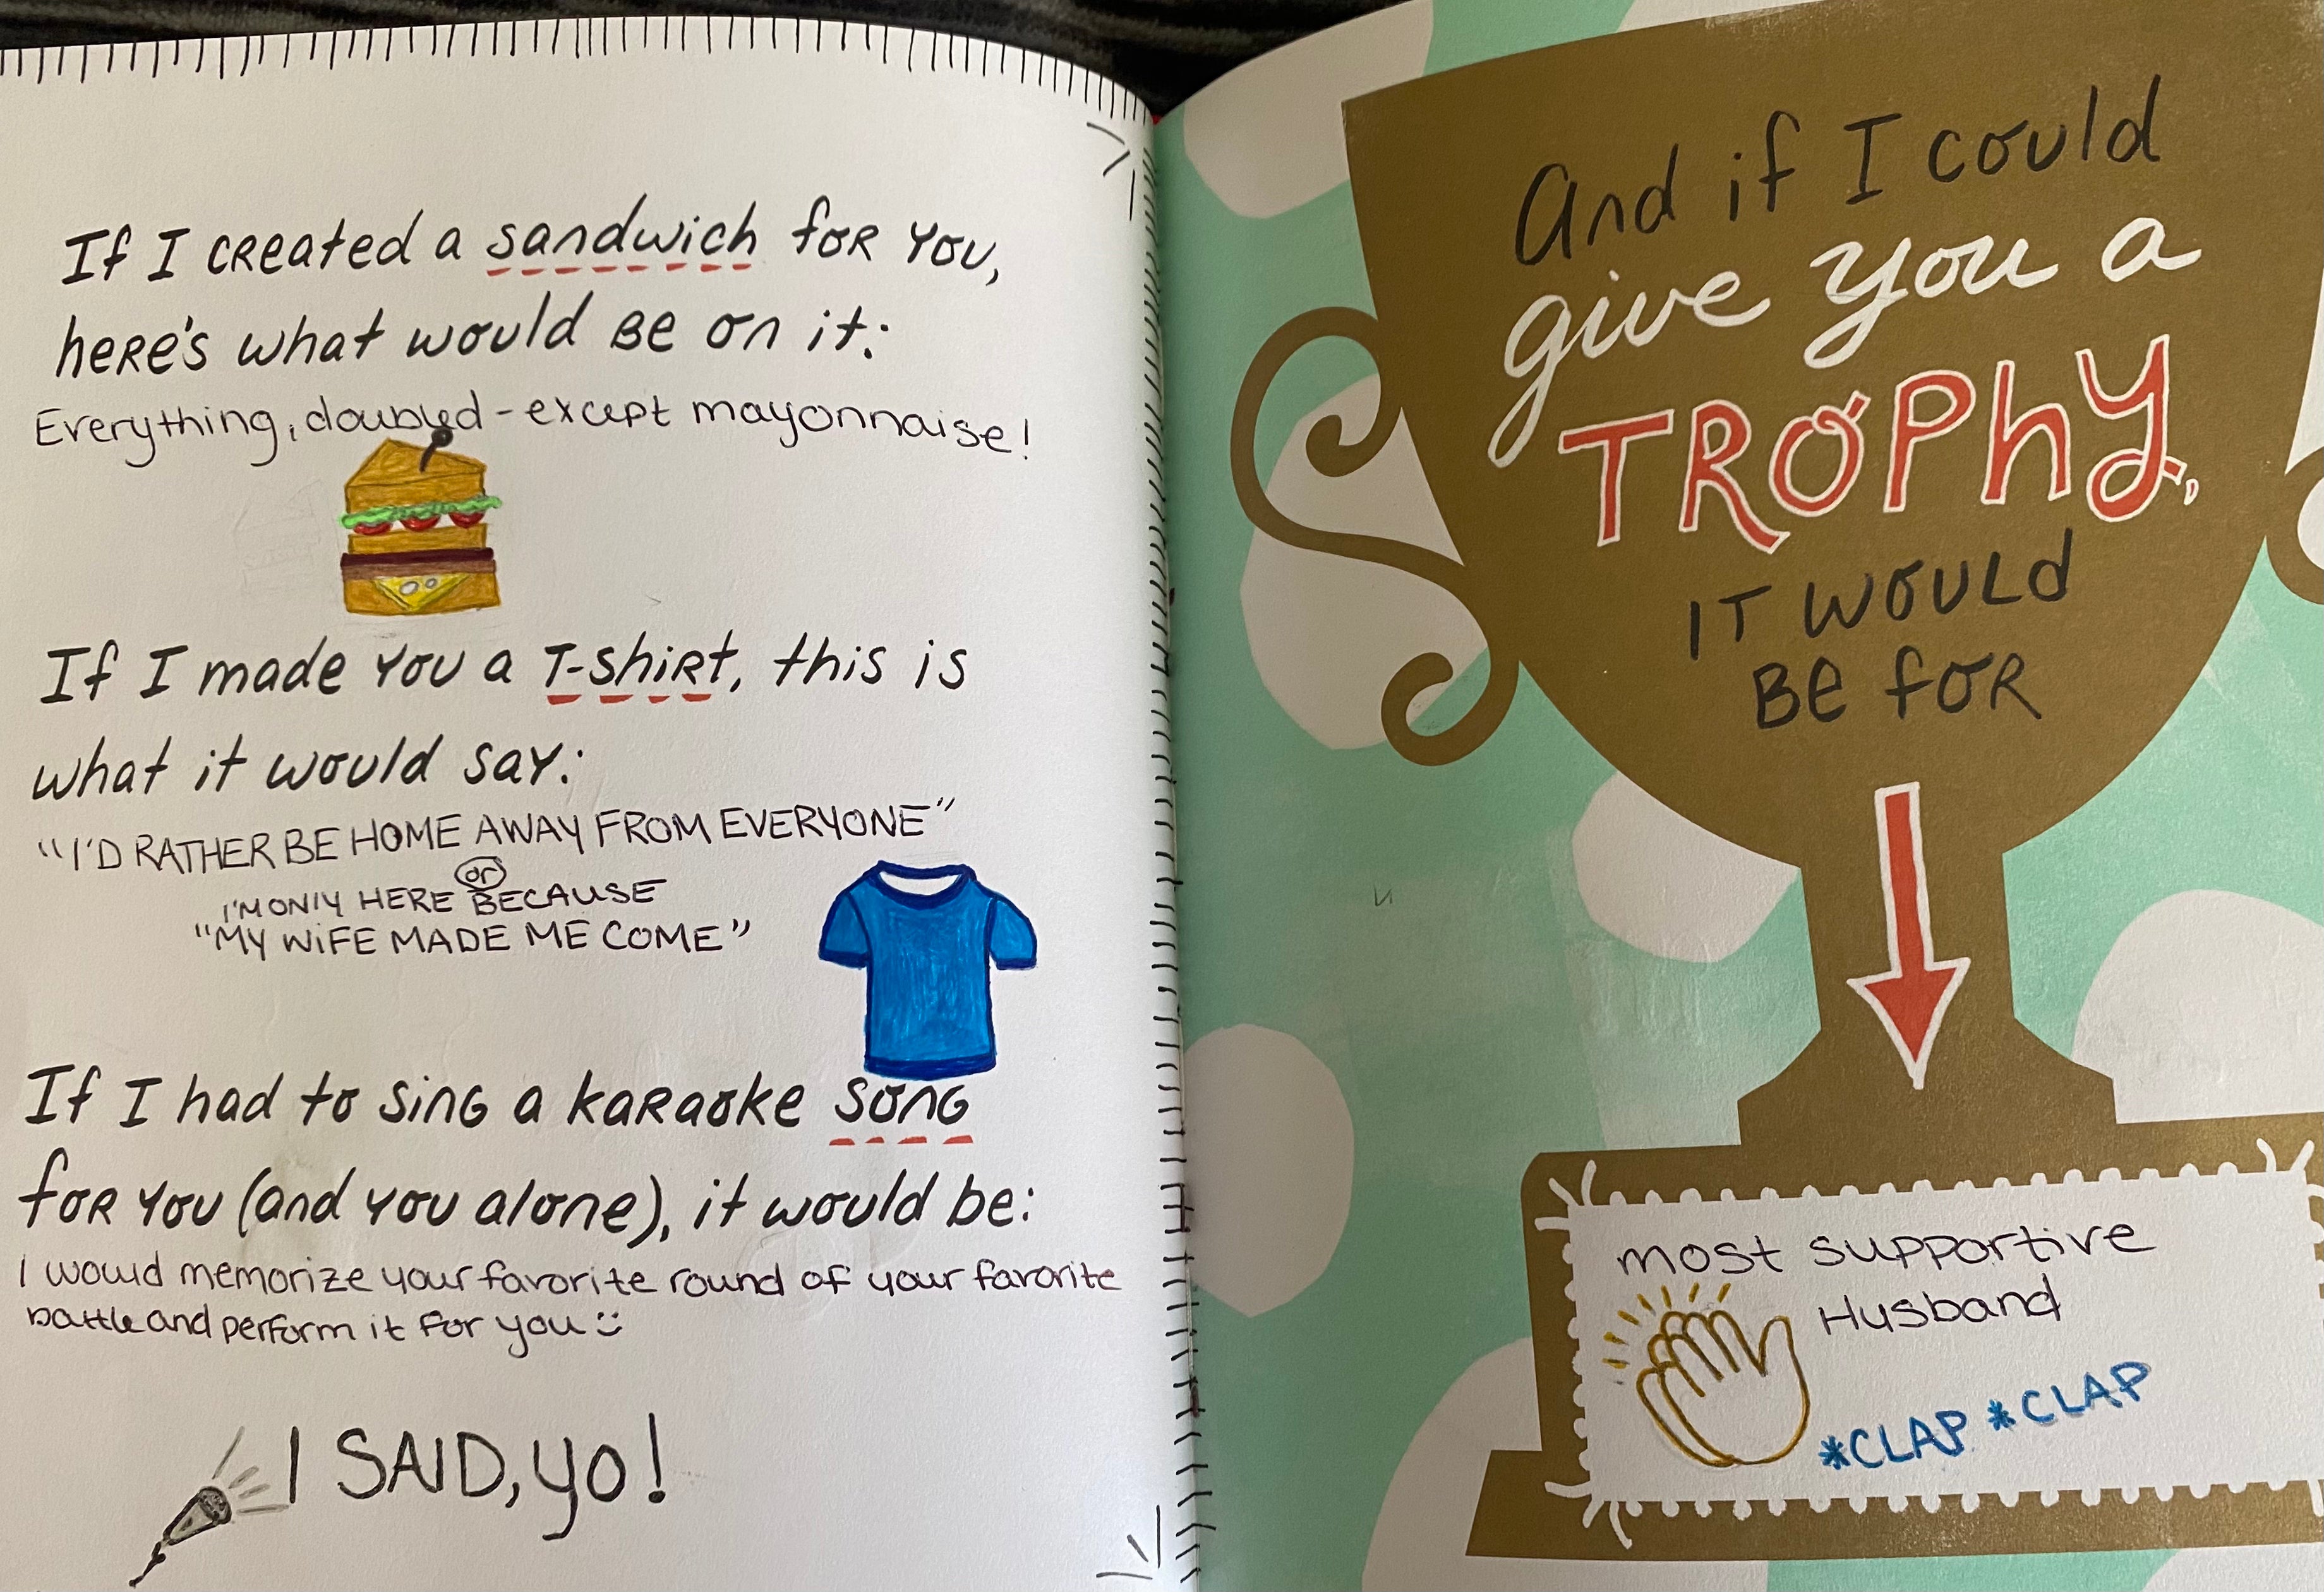 If I created a sandwich for you,
here's what would be on it:
Everything, doubled - except mayonnaise!
If I made you a T-shirt, this is
what it would say:
"I'D RATHER BE HOME AWAY FROM EVERYONE"
or
I'M ONLY HERE BECAUSE
"MY WIFE MADE ME COME"
If I had to sing a karaoke song
for you (and you alone), it would be:
I would memorize your favorite round of your favorite
battle and perform it for you :)
I SAID, yo!
And if I could
give you a
TROPHY,
IT WOULD
BE FOR
most supportive
Husband
*CLAP *CLAP